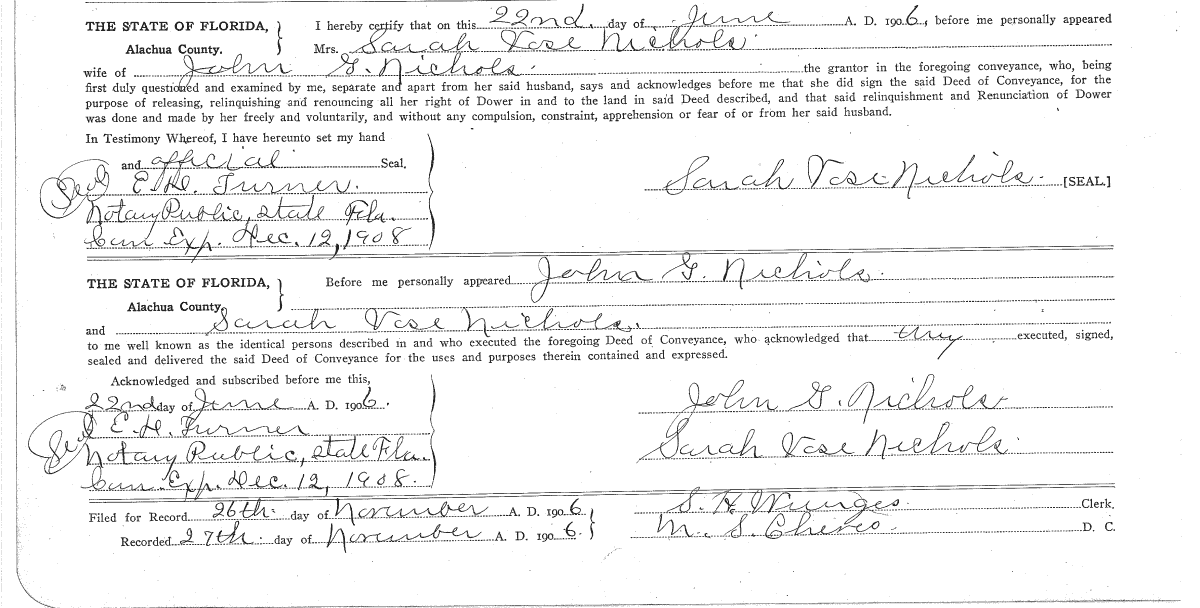 THE STATE OF FLORIDA, } I hereby certify that on this 22nd. day of June A. D. 1906, before me personally appeared
Alachua County. Mrs. Sarah Vose Nichols.
wife of John G. Nichols. the grantor in the foregoing conveyance, who, being
first duly questioned and examined by me, separate and apart from her said husband, says and acknowledges before me that she did sign the said Deed of Conveyance, for the
purpose of releasing, relinquishing and renouncing all her right of Dower in and to the land in said Deed described, and that said relinquishment and Renunciation of Dower
was done and made by her freely and voluntarily, and without any compulsion, constraint, apprehension or fear of or from her said husband.
In Testimony Whereof, I have hereunto set my hand
and official Seal.
Seal E. H. Turner. Sarah Vose Nichols. [SEAL.]
Notary Public, State Fla.
Com Exp. Dec. 12, 1908
THE STATE OF FLORIDA, } Before me personally appeared John G. Nichols.
Alachua County.
and Sarah Vose Nichols.
to me well known as the identical persons described in and who executed the foregoing Deed of Conveyance, who acknowledged that they executed, signed,
sealed and delivered the said Deed of Conveyance for the uses and purposes therein contained and expressed.
Acknowledged and subscribed before me this,
22nd day of June A. D. 1906. John G. Nichols
Seal E. H. Turner
Notary Public, State Fla. Sarah Vose Nichols.
Com. Exp. Dec. 12, 1908.
Filed for Record 26th. day of November A. D. 1906 } S. H. Wienges. Clerk.
Recorded 27th. day of November A. D. 1906. M. S. Cheves. D. C.